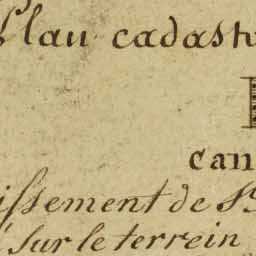 Plan cadast
can
issement de St
sur le terrein